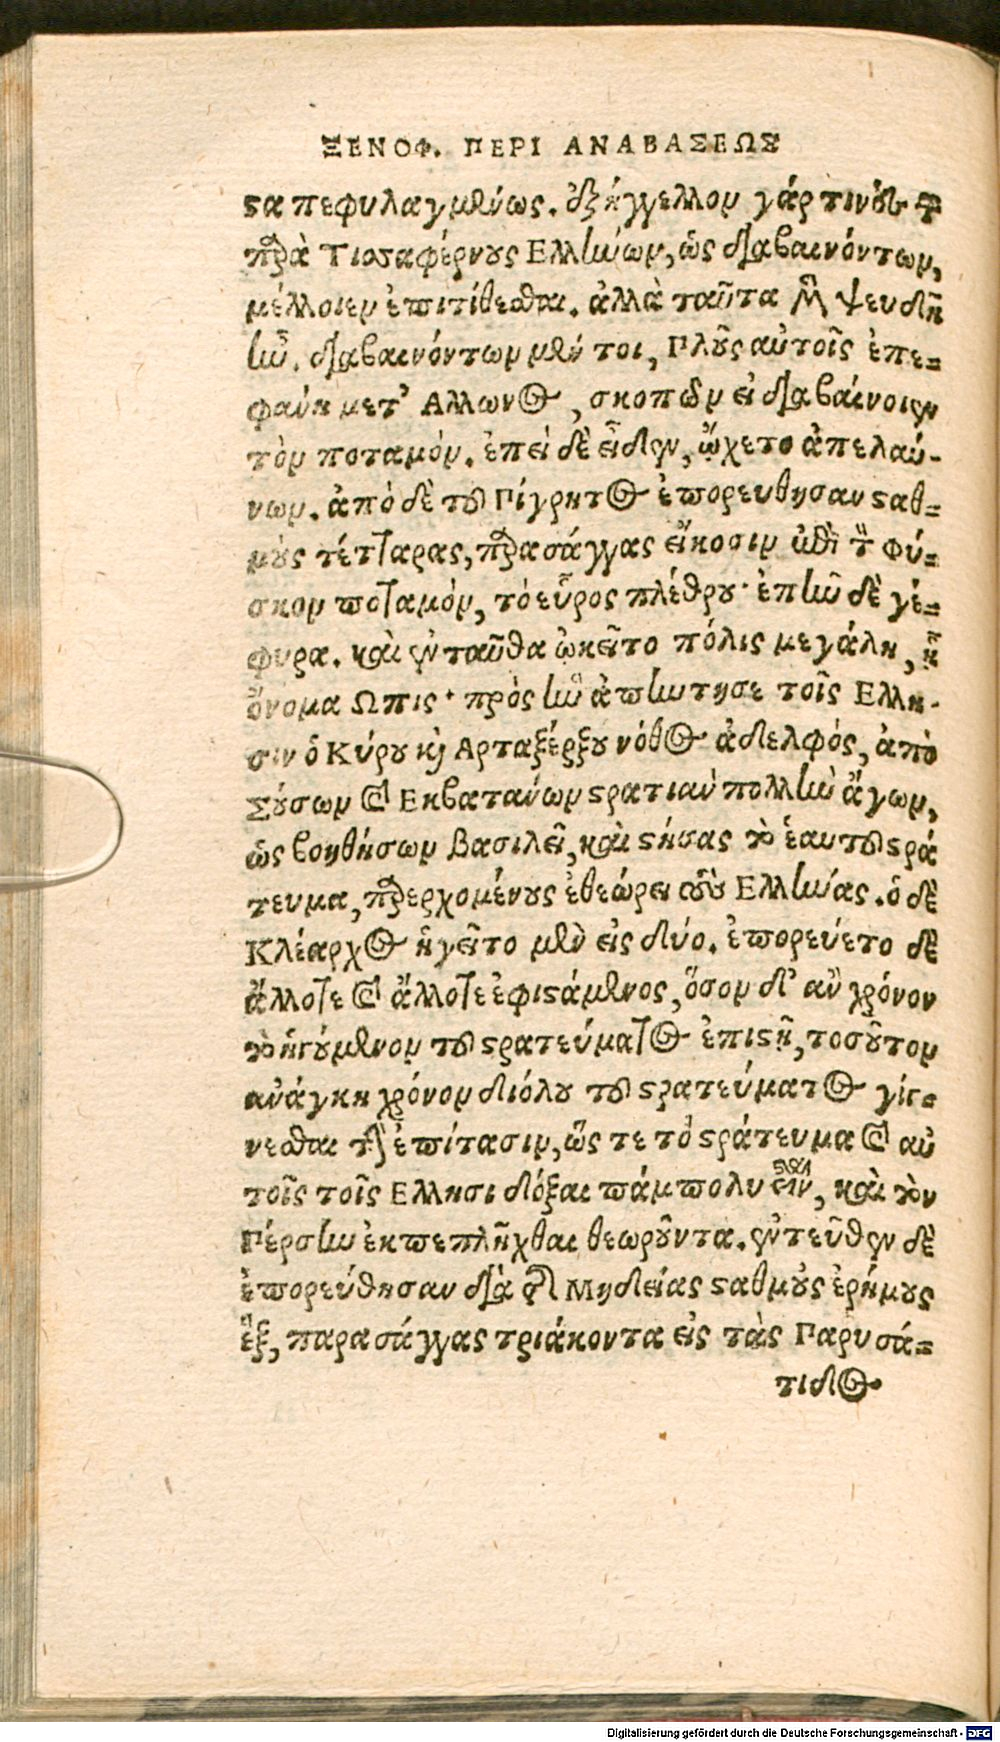 ΞΕΝΟΦ. ΠΕΡΙ ΑΝΑΒΑΣΕΩΣ
ϛα πεφυλαγμένως. ἐξήγγελλον γάρ τινες τῶν
παρὰ Τισσαφέρνους Ελλήνων, ὡς διαβαινόντων,
μέλλοιεν ἐπιτίθεσθαι. ἀλλὰ ταῦτα μὴν ψευδῆ
ἦν. διαβαινόντων μέν τοι, Γλοῦς αὐτοῖς ἐπε-
φαύη μετ' Αλλων , σκοπῶν εἰ διαβαίνοιεν
τὸν ποταμόν. ἐπεὶ δὲ εἶδεν, ᾤχετο ἀπελαύ-
νων. ἀπὸ δὲ τοῦ Γίγρητος ἐπορευθησαν ϛαθ-
μοὺς τέτταρας, παρασάγγας εἴκοσιν ἐπὶ τὸν Φύ-
σκον ποταμόν, τὸ εὖρος πλέθρου· ἐπῆν δὲ γέ-
φυρα. καὶ ἐνταῦθα ᾠκεῖτο πόλις μεγάλη, ᾗ
ὄνομα Ωπις· πρὸς ἣν ἀπήντησε τοῖς Ελλη-
σιν ὁ Κύρου καὶ Αρταξέρξου νόθος ἀδελφός, ἀπὸ
Σούσων καὶ Εκβατανων ϛρατιὰν πολλὴν ἄγων,
ὡς βοηθήσων βασιλεῖ, καὶ ϛήσας τὸ ἑαυτοῦ ϛρά
τευμα, παρερχομένους ἐθεώρει τοὺς Ελληνας. ὁ δὲ
Κλέαρχος ἡγεῖτο μὲν εἰς δύο. ἐπορεύετο δὲ
ἄλλοτε καὶ ἄλλοτε ἐφιϛάμενος, ὅσον δ' ἂν χρόνον
τὸ ἡγούμενον τοῦ ϛρατεύματος ἐπιϛῇ, τοσοῦτον
ἀνάγκη χρόνον διόλου τοῦ ϛρατεύματος γίγ-
νεσθαι τὴν ἐπίτασιν, ὥς τε τὸ ϛράτευμα καὶ αὐ
τοῖς τοῖς Ελλησι δόξαι πάμπολυ εἶναι, καὶ τὸν
Γέρσην ἐκπεπλῆχθαι θεωροῦντα. ἐντεῦθεν δὲ
ἐπορεύθησαν διὰ τῆς Μηδείας ϛαθμοὺς ἐρήμους
ἓξ, παρασάγγας τριάκοντα εἰς τὰς Γαρυσά-
τιδος
Digitalisierung gefördert durch die Deutsche Forschungsgemeinschaft - DFG